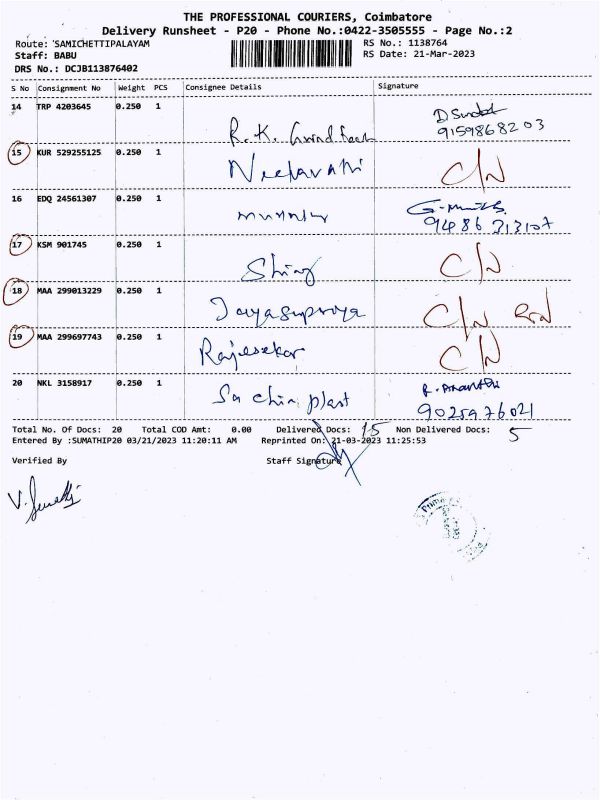 THE PROFESSIONAL COURIERS, Coimbatore
Delivery Runsheet - P20 - Phone No.:0422-3505555 - Page No.:2
Route: SAMICHETTIPALAYAM RS No.: 1138764
Staff: BABU RS Date: 21-Mar-2023
DRS No.: DCJB113876402
S No Consignment No Weight PCS Consignee Details Signature
14 TRP 4203645 0.250 1
R.K. 9159868203
15 KUR 529255125 0.250 1
C/N
16 EDQ 24561307 0.250 1
9486313107
17 KSM 901745 0.250 1
C/N
18 MAA 299013229 0.250 1
Jayasupriya C/N
19 MAA 299697743 0.250 1
Rajesekar C/N
20 NKL 3158917 0.250 1
Sachin plast 9025976021
Total No. Of Docs: 20 Total COD Amt: 0.00 Delivered Docs: 15 Non Delivered Docs: 5
Entered By :SUMATHIP20 03/21/2023 11:20:11 AM Reprinted On: 21-03-2023 11:25:53
Verified By Staff Signature